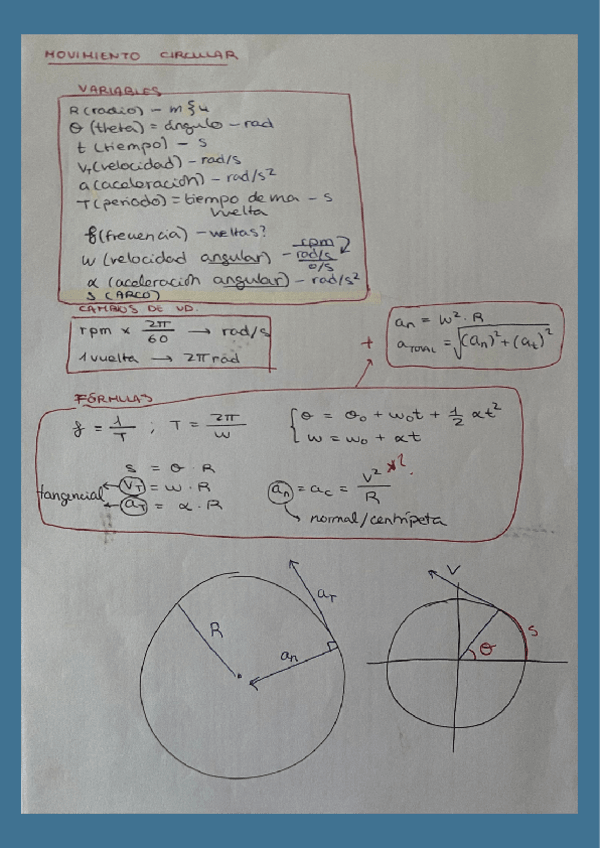 MOVIMIENTO CIRCULAR
VARIABLES
R (radio) - m
θ (theta) = ángulo - rad
t (tiempo) - s
V_T (velocidad) - rad/s
a (aceleración) - rad/s²
T (periodo) = tiempo de ma - s
vuelta
f (frecuencia) - vueltas?
rpm
ω (velocidad angular) - rad/s
o/s
α (aceleración angular) - rad/s²
s (ARCO)
CAMBIOS DE UD.
rpm x 2π/60 → rad/s
1 vuelta → 2π rad
+
a_n = ω² · R
a_TOTAL = √(a_n)² + (a_t)²
FÓRMULAS
f = 1/T ; T = 2π/ω
θ = θ₀ + ω₀t + 1/2 αt²
ω = ω₀ + αt
s = θ · R
tangencial
V_T = ω · R
a_T = α · R
a_n = a_c = V²/R *?
normal/centrípeta
R
a_T
a_n
V
s
θ